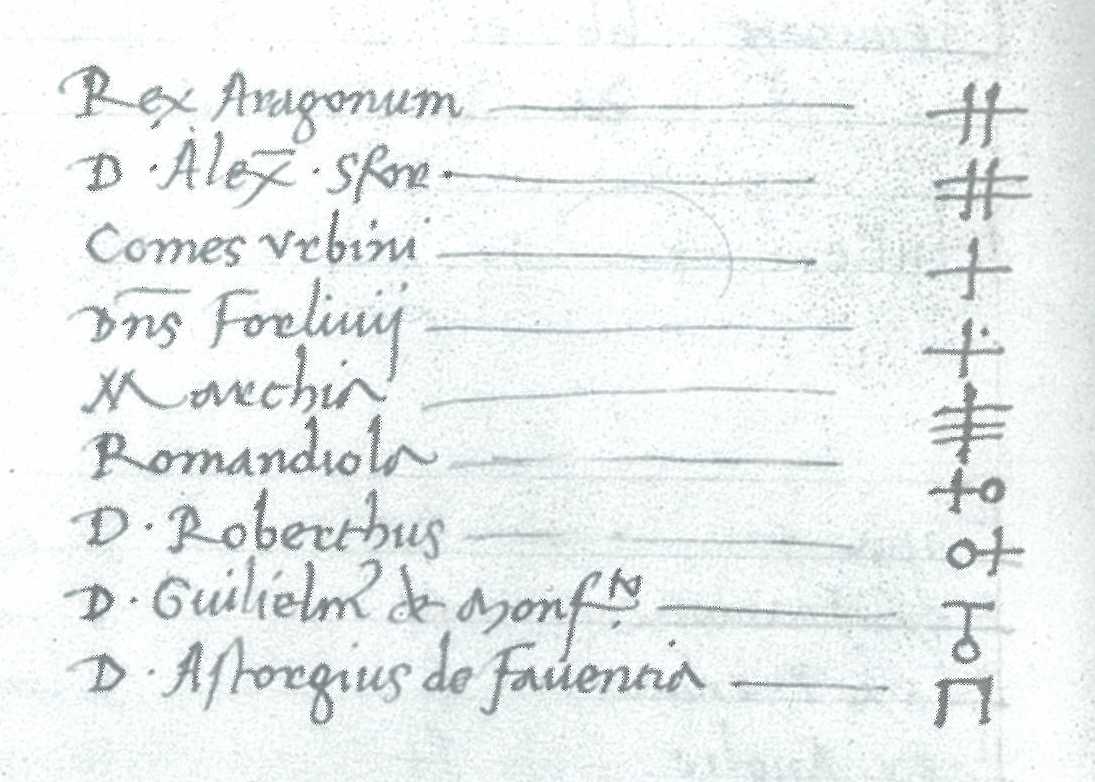 Rex Aragonum
D. Alex̄. Sfor.
Comes Urbini
Dn̄s Forliuij
Marchia
Romandiola
D. Roberthus
D. Guilielm de Monf.
D. Astorgius de Fauentia